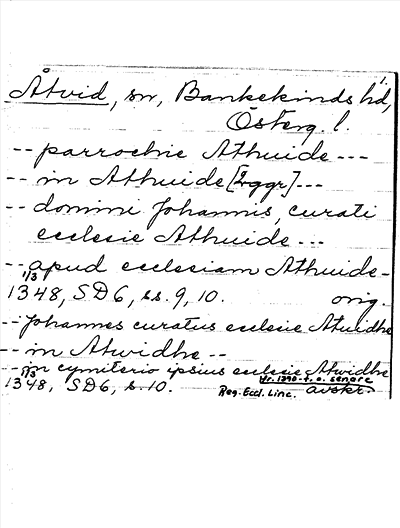 1.
Åtvid, sn, Bankekinds hd,
Österg. l.
-- parrochie Athuide ---
-- in Athuide [2ggr] ---
-- domini Johannis, curati
ecclesie Athuide ---
-- apud ecclesiam Athuide -
1/3
1348, SD6, ss. 9, 10. orig.
-- Johannes curatus ecclesie Atuidhe
-- in Atwidhe --
-- in cymiterio ipsius ecclesie Atwidhe
1/3 Hr. 1390-t. o. senare
1348, SD6, s. 10. Reg. Eccl. Linc. avskr.